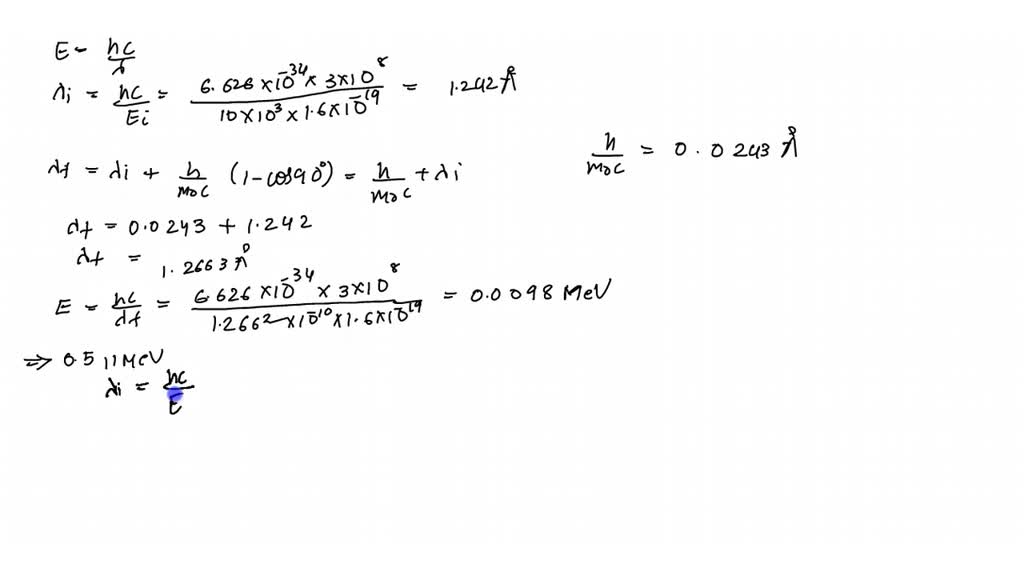 E - hc/λ
λi = hc/Ei = 6.626 × 10^-34 × 3×10^8 / 10×10^3 × 1.6×10^-19 = 1.242 Å
λf = λi + h/m₀c (1-cos90°) = h/m₀c + λi
h/m₀c = 0.0243 Å
λf = 0.0243 + 1.242
λf = 1.2663 Å
E - hc/λf = 6.626 ×10^-34 × 3×10^8 / 1.2662 ×10^-10 × 1.6×10^-19 = 0.0098 MeV
⇒ 0.511 MeV
λi = hc/E